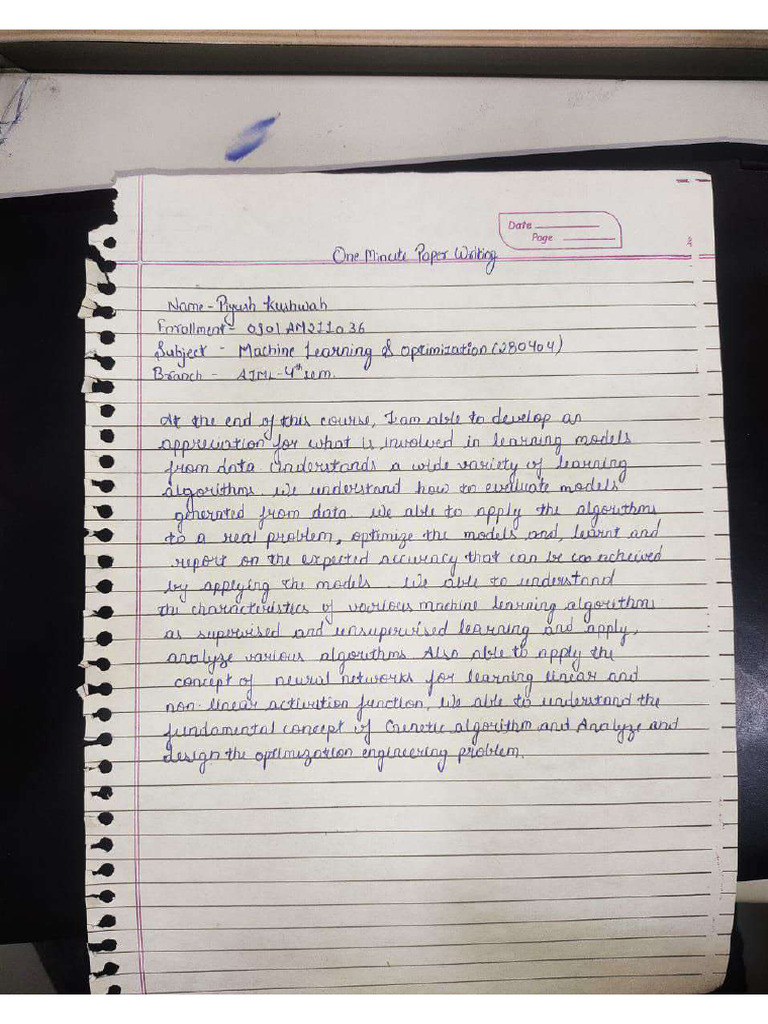 Date
Page
One Minute Paper Writing
Name - Piyush Kushwah
Enrollment - 0901AM211036
Subject - Machine Learning & Optimization (280404)
Branch - AIML - 4th sem.
At the end of this course, I am able to develop an
appreciation for what is involved in learning models
from data Understands a wide variety of learning
algorithms. We understand how to evaluate models
generated from data. We able to apply the algorithms
to a real problem, optimize the models and, learnt and
report on the expected accuracy that can be acheived
by applying the models. We able to understand
the characteristics of various machine learning algorithm
as supervised and unsupervised learning and apply,
analyze various algorithms. Also able to apply the
concept of neural networks for learning linear and
non-linear activition function, We able to understand the
fundamental concept of Genetic algorithm and Analyze and
design the optimization engineering problem.